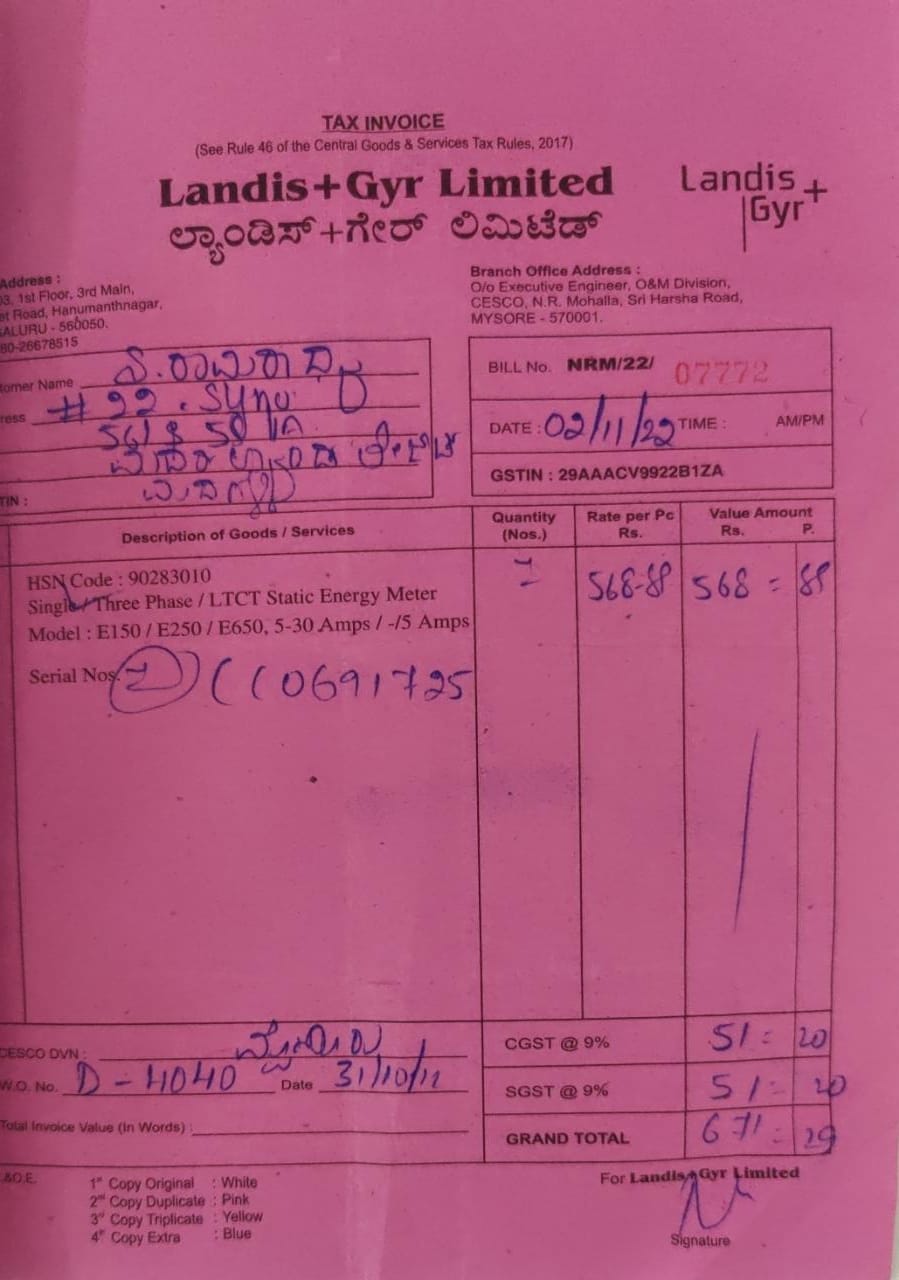 TAX INVOICE
(See Rule 46 of the Central Goods & Services Tax Rules, 2017)
Landis+Gyr Limited
ಲ್ಯಾಂಡಿಸ್+ಗೇರ್ ಲಿಮಿಟೆಡ್
Landis
Gyr+
Address :
03, 1st Floor, 3rd Main,
et Road, Hanumanthnagar,
ALURU - 560050.
80-26678515
Branch Office Address :
O/o Executive Engineer, O&M Division,
CESCO, N.R. Mohalla, Sri Harsha Road,
MYSORE - 570001.
tomer Name
ress # 22. Sy no.
TIN :
BILL No. NRM/22/ 07772
DATE : 02/11/22 TIME : AM/PM
GSTIN : 29AAACV9922B1ZA
Description of Goods / Services
Quantity (Nos.)
Rate per Pc Rs.
Value Amount Rs. P.
HSN Code : 90283010
Single / Three Phase / LTCT Static Energy Meter
Model : E150 / E250 / E650, 5-30 Amps / -/5 Amps
568-88 568 = 88
Serial Nos. 0691725
CESCO DVN :
W.O. No. D - 4040 Date 31/10/
Total Invoice Value (In Words) :
CGST @ 9% 51 = 20
SGST @ 9% 51 = 20
GRAND TOTAL 671 = 29
&O.E.
1st Copy Original : White
2nd Copy Duplicate : Pink
3rd Copy Triplicate : Yellow
4th Copy Extra : Blue
For Landis+Gyr Limited
Signature